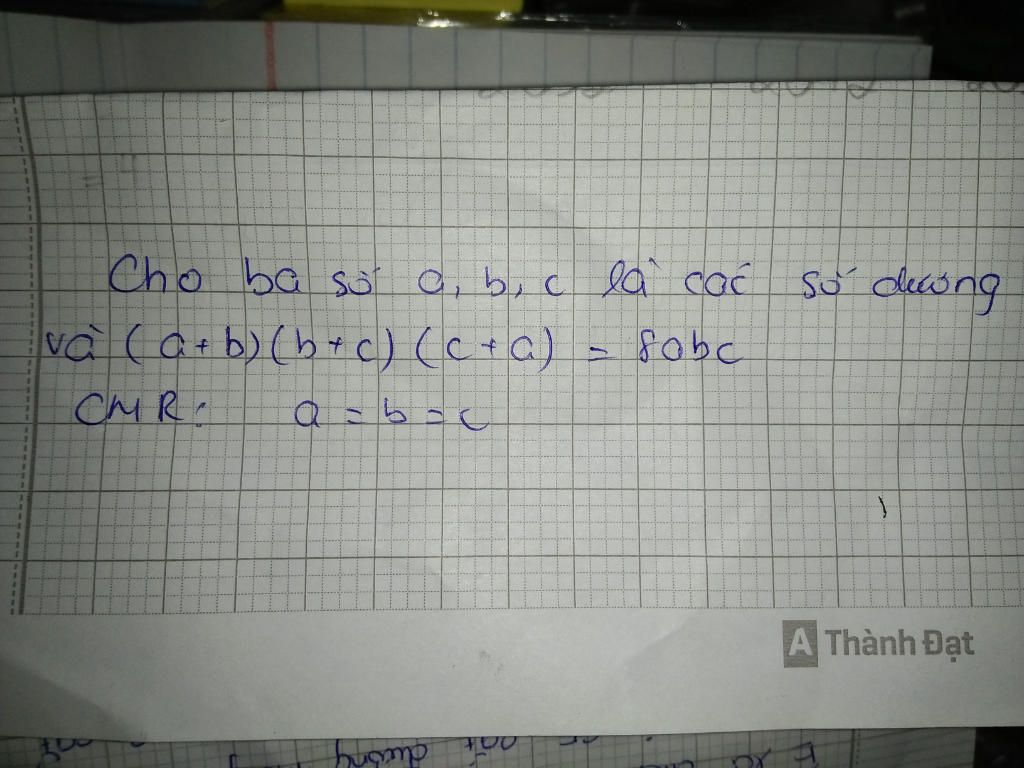 Cho ba số a, b, c là các số dương
và (a+b)(b+c)(c+a) = 8abc
CMR: a = b = c
A Thành Đạt